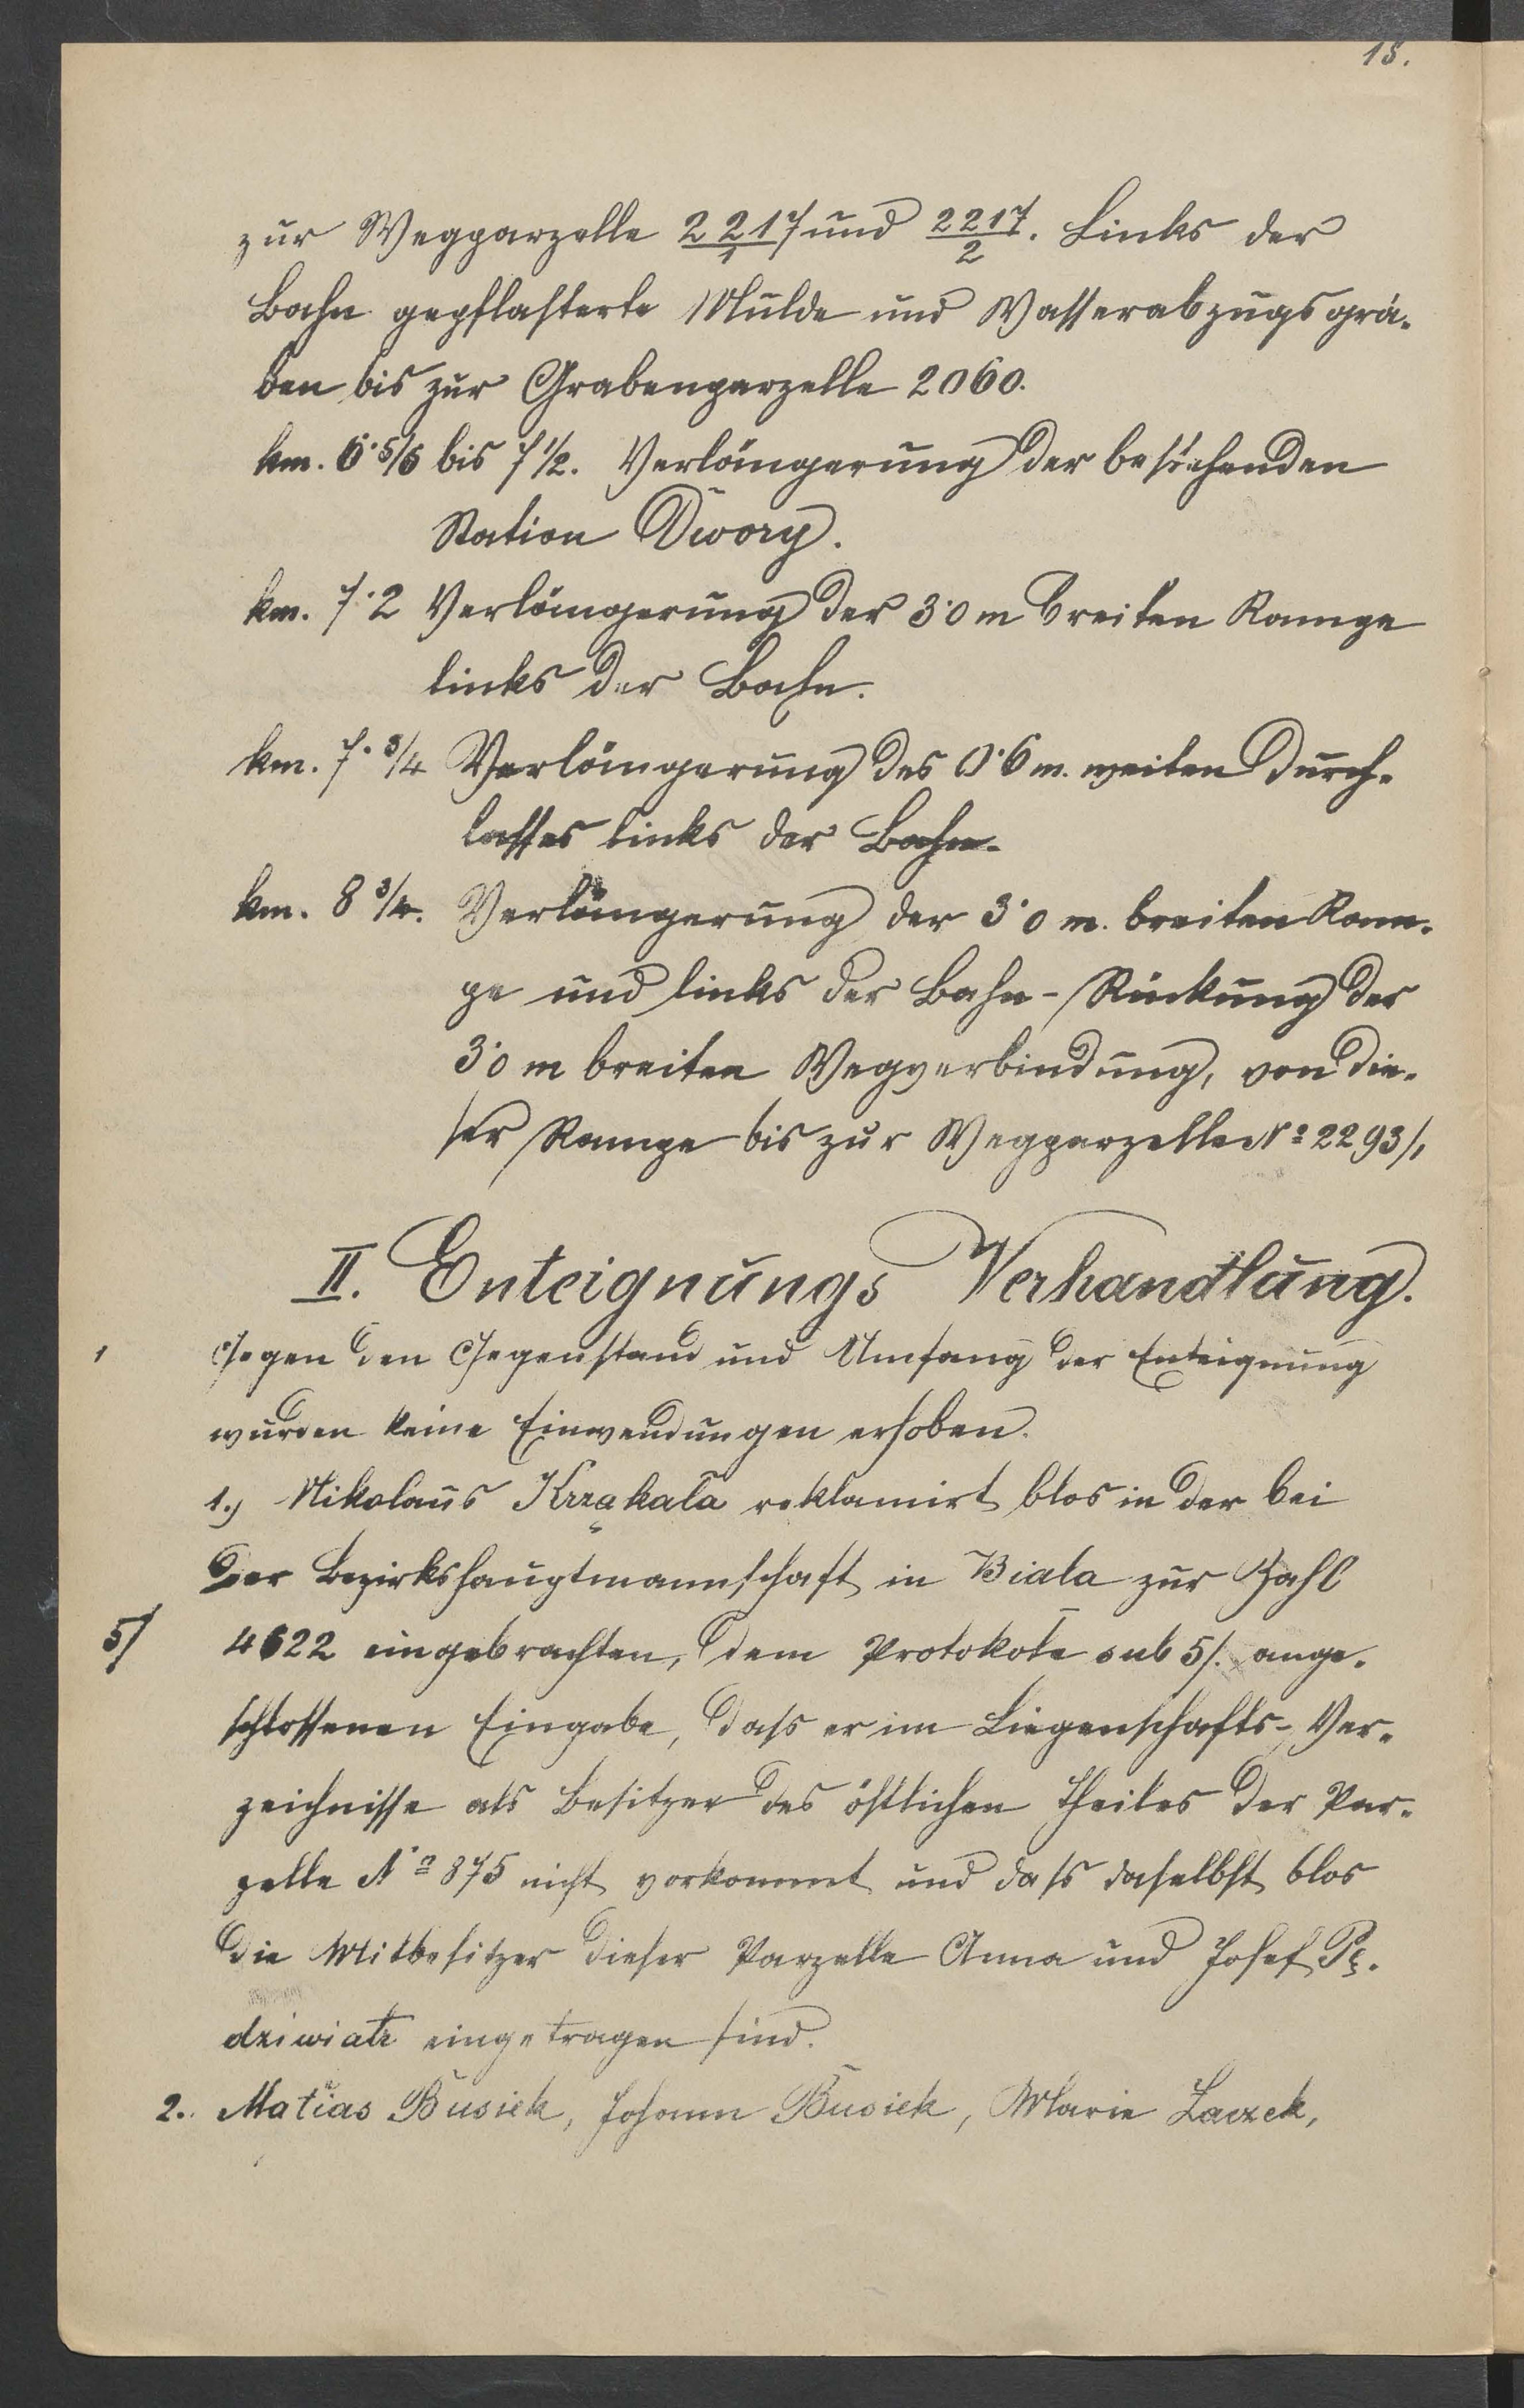 18.
zur Wegparzelle 2217/1 und 2217/2. Links der
Bahn gepflasterte Mulde und Wasserabzugsgrä-
ben bis zur Grabenparzelle 2060.
km. 6·5/6 bis 7 1/2. Verlängerung der bestehenden
Station Dwory.
km. 7·2 Verlängerung der 3·0 m breiten Rampe
links der Bahn.
km. 7·3/4 Verlängerung des 0·6 m. weiten Durch-
lasses links der Bahn.
km. 8 3/4. Verlängerung der 3·0 m. breiten Ram-
pe und links der Bahn-Rückung der
3·0 m breiten Wegverbindung, von die-
ser Rampe bis zur Wegparzelle No 2293/1
II. Enteignungs Verhandlung.
Gegen den Gegenstand und Umfang der Enteignung
wurden keine Einwendungen erhoben.
1.) Nikolaus Krząkala reklamirt blos in der bei
der Bezirkshauptmannschaft in Biala zur Zahl
5/ 4622 eingebrachten, dem Protokole sub 5/. ange-
schlossenen Eingabe, dass er im Liegenschafts-Ver-
zeichnisse als Besitzer des östlichen Theiles der Par-
zelle No 875 nicht vorkommt und dass daselbst blos
die Mitbesitzer dieser Parzelle Anna und Josef Pę-
dziwiatr eingetragen sind.
2. Matias Busiek, Johann Busiek, Marie Łaczek,